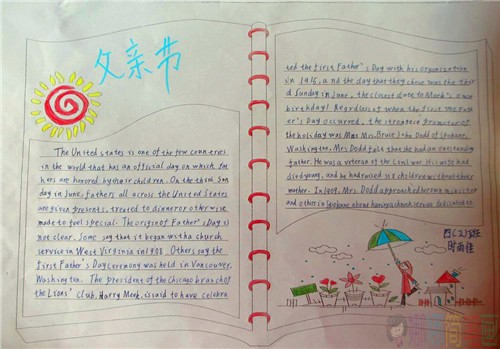 父亲节
The United states is one of the few countries
in the world that has an official day on which fat
hers are honored by their children. On the third Sun
day in June, fathers all across the United States
are given presents, treated to dinner or otherwise
made to feel special. The origin of Father's Day is
not clear. Some say that it began with a church
service in West Virginia in 1908. Others say the
first Father's Day ceremony was held in Vancouver,
Washington. The president of the Chicago branch of
the Lions' Club, Harry Meek, is said to have celebra
ted the first Father's Day with his organization
in 1915, and the day that they chose was the thir
d Sunday in june, the closest date to Meek's own
birthday! Regardless of when the first
Day occurred, the strongest promoter of
the holiday was Mrs. Bruce John Dodd of Spokane,
Washington. Mrs Dodd felt that she had an outstanding
father. He was a veteran of the Civil war. His wife had
died young, and he had raised six children without their
mother. In 1909, Mrs. Dodd approached her own minister
and others in Spokane about having a church service dedicated to
四(2)班